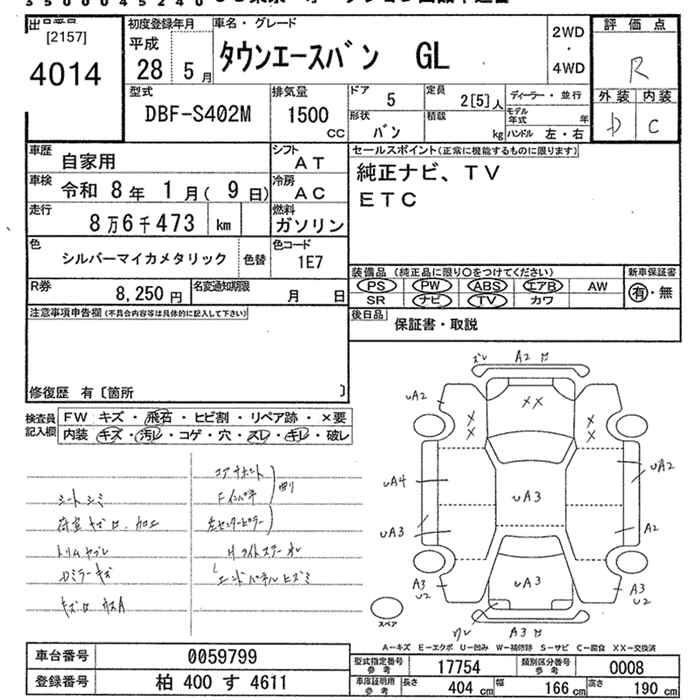 [2157]
4014
初度登録年月
平成
28年 5月
車名・グレード
タウンエースバン GL
2WD
・
4WD
評価点
R
外装 内装
D C
型式
DBF-S402M
排気量
1500
CC
ドア
5
定員
2[5]人
形状
バン
積載
kg
ディーラー・並行
モデル年式 年
ハンドル 左・右
車歴
自家用
シフト
AT
車検
令和 8年 1月( 9日)
冷房
AC
走行
8万6千473 km
燃料
ガソリン
色
シルバーマイカメタリック
色替
色コード
1E7
R券
8,250円
名変通知期限
月 日
セールスポイント(正常に機能するものに限ります)
純正ナビ、TV
ETC
装備品 (純正品に限り○をつけてください)
新車保証書
PS PW ABS エアB AW
有・無
SR ナビ TV カワ
後日品
保証書・取説
注意事項申告欄(不具合内容等は具体的に記入して下さい)
修復歴 有〔箇所 〕
検査員記入欄
FW キズ・飛石・ヒビ割・リペア跡・×要
内装 キズ・汚レ・コゲ・穴・スレ・キレ・破レ
シートシミ
トリムヤブレ
Dミラーキズ
コアサポート
Fインパネ
左センターピラー
エンドパネルヒズミ
ズレ
A2
uA2
XX
X
X
X
X
uA4
uA3
uA2
uA3
A2
uA3
A3
U2
A3
U2
ワレ
A3
スペア
A-キズ E-エクボ U-凹み W-補修跡 S-サビ C-腐食 XX-交換済
車台番号
0059799
登録番号
柏 400 す 4611
型式指定番号
参考
17754
類別区分番号
参考
0008
車庫証明用
参考
長さ
404 cm
幅
166 cm
高さ
190 cm